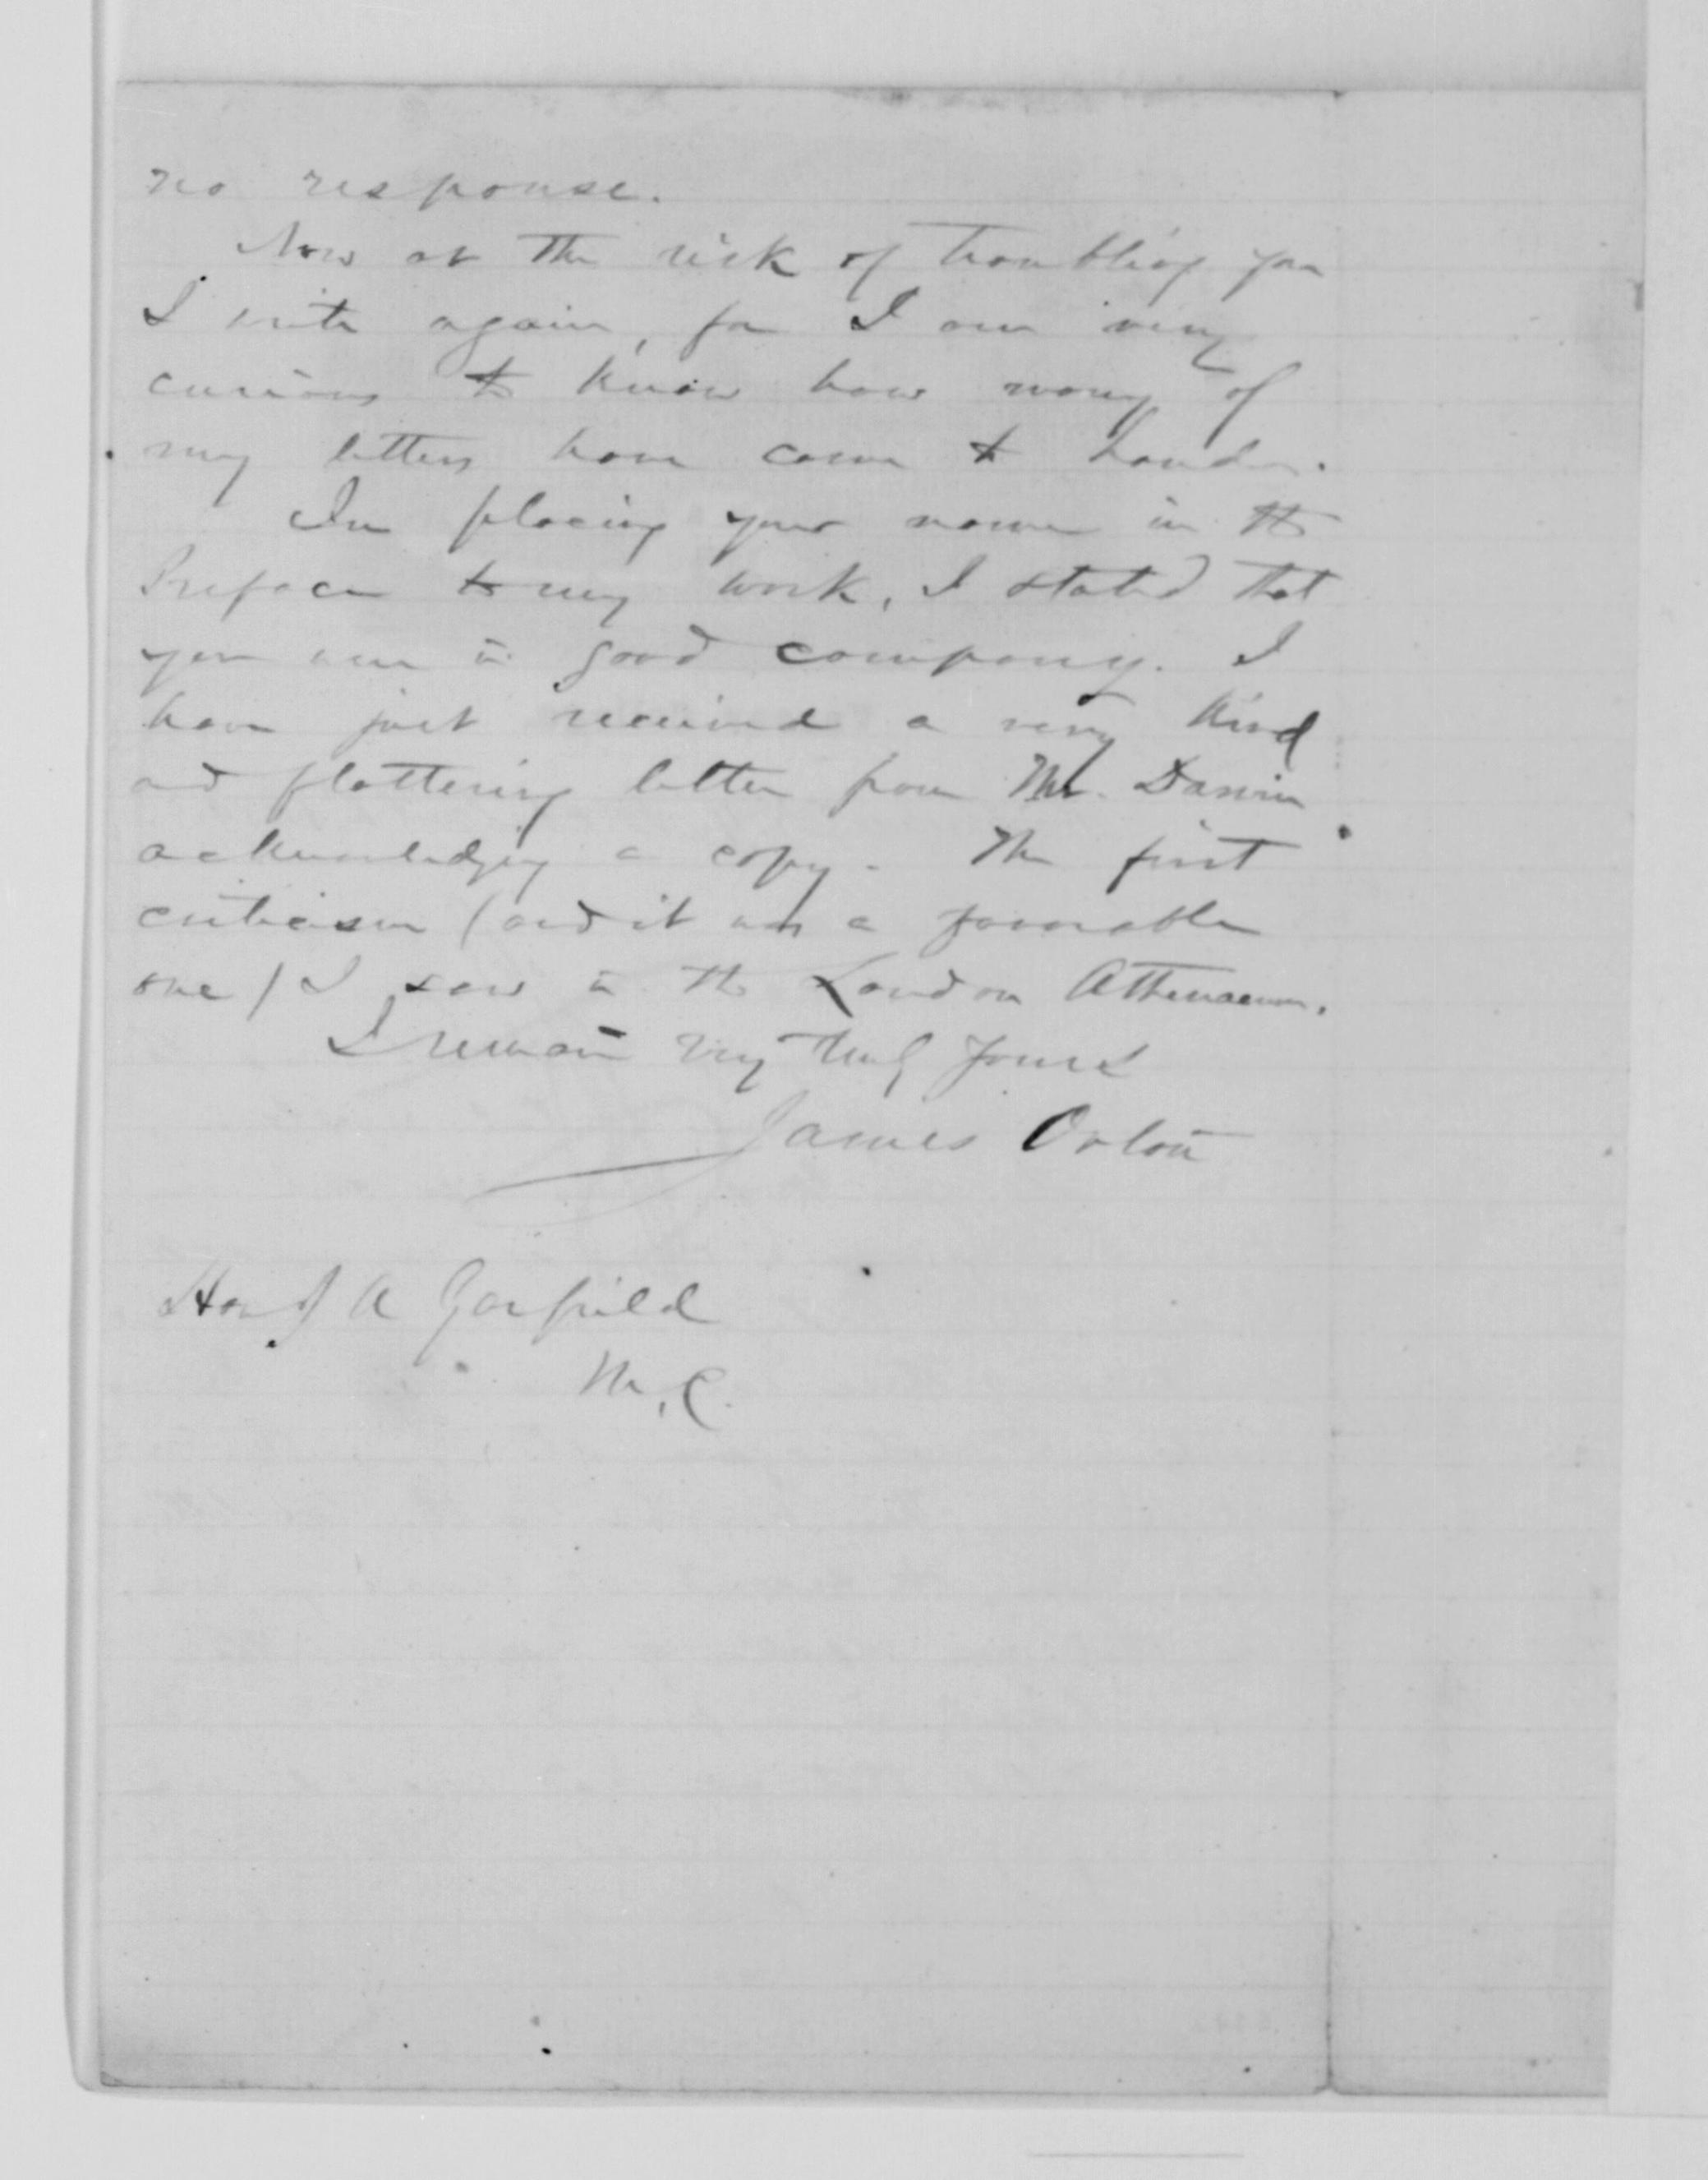 no response.
Now at the risk of troubling you
I write again, for I am very
curious to know how many of
my letters have come to hand.
In placing your name in the
Preface to my work, I stated that
you were in good company. I
have just received a very kind
and flattering letter from Mr. Darwin
acknowledging a copy. The first
criticism (and it was a favorable
one) I saw in the London Athenaeum.
I remain very truly yours
James Orton
Hon J A Garfield
M.C.